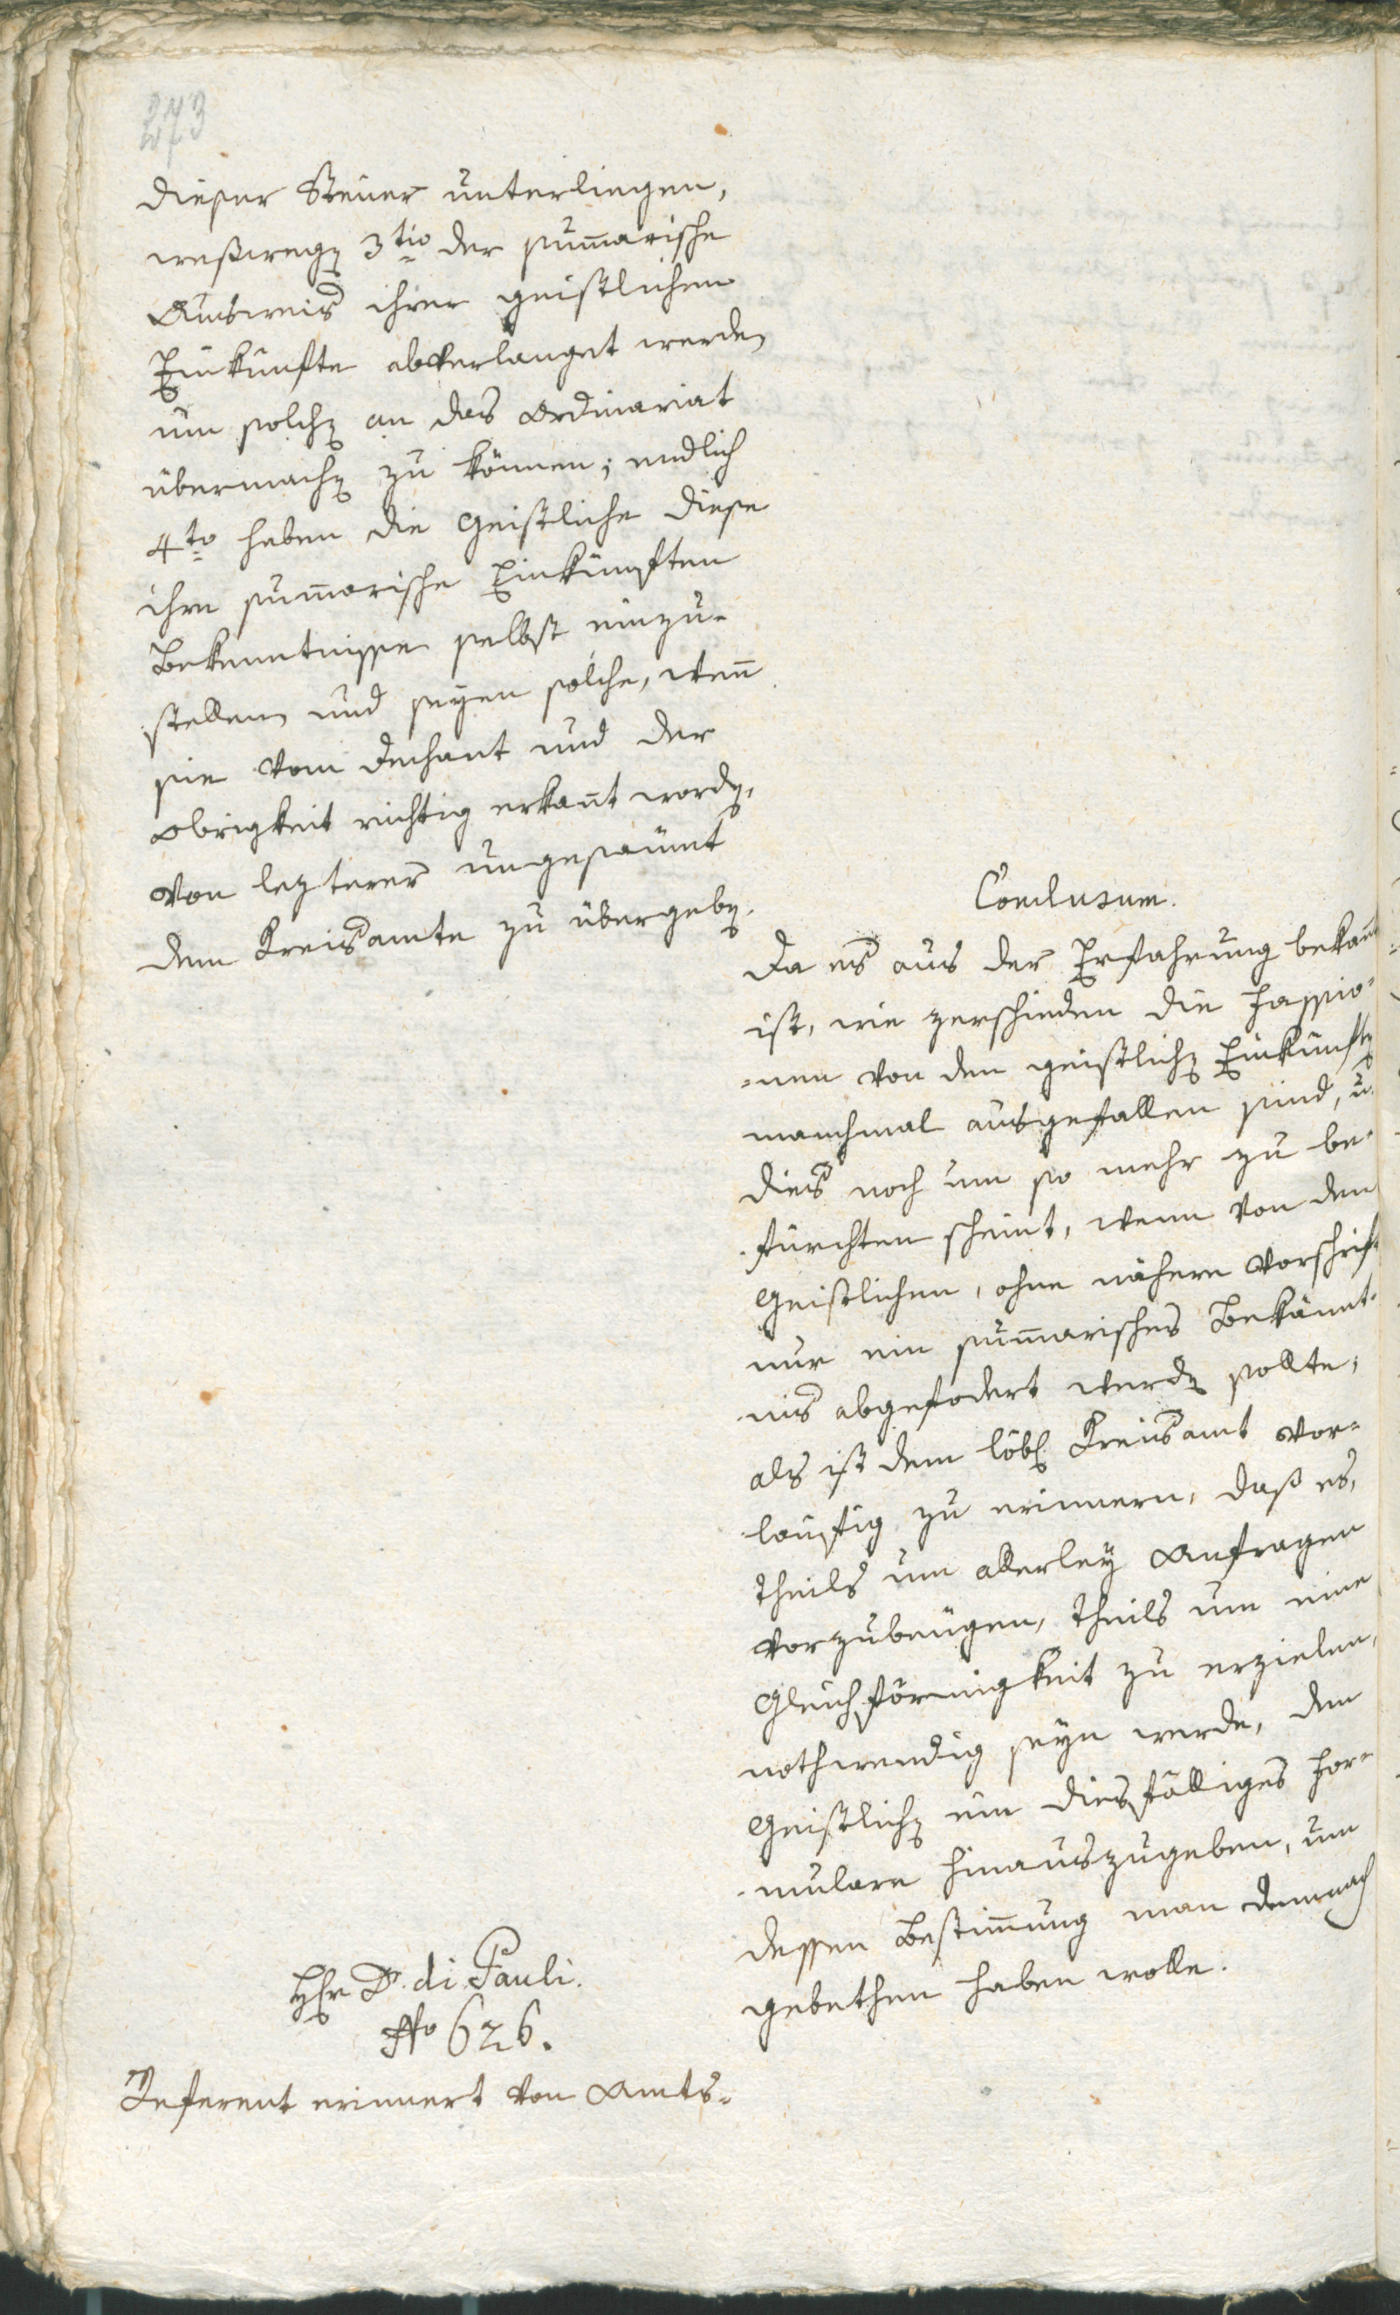 273
dieser Steuer unterliegen,
weßwegen 3tio der summarische
Ausweis ihrer geistlichen
Einkünfte abverlanget werden
um solchen an das Ordinariat
übermachen zu können; endlich
4to haben die Geistliche diese
ihre summarische Einkünften
Bekenntnisse selbst einzu-
stellen und seyen solche, wenn
sie vom Dechant und der
Obrigkeit richtig erkannt worden,
von lezterer ungesäumt
dem Kreisamte zu übergeben.
Conclusum.
Da es aus der Erfahrung bekannt
ist, wie verschieden die Fassio-
-nen von den geistlichen Einkünften
manchmal ausgefallen sind, u.
dies noch um so mehr zu be-
fürchten scheint, wenn von den
Geistlichen, ohne nähere Vorschrift
nur ein summarisches Bekännt-
nis abgefodert werden sollte,
als ist dem löbl Kreisamt vor-
läufig zu erinnern, daß es,
theils um allerley Anfragen
vorzubeugen, theils um eine
Gleichförmigkeit zu erzielen,
nothwendig seyn werde, den
Geistlichen ein diesfälliges For-
mulare hinauszugeben, um
dessen Bestimmung man demnach
gebethen haben wolle.
Hr D. di Pauli.
No 626.
Referent erinnert von Amts-